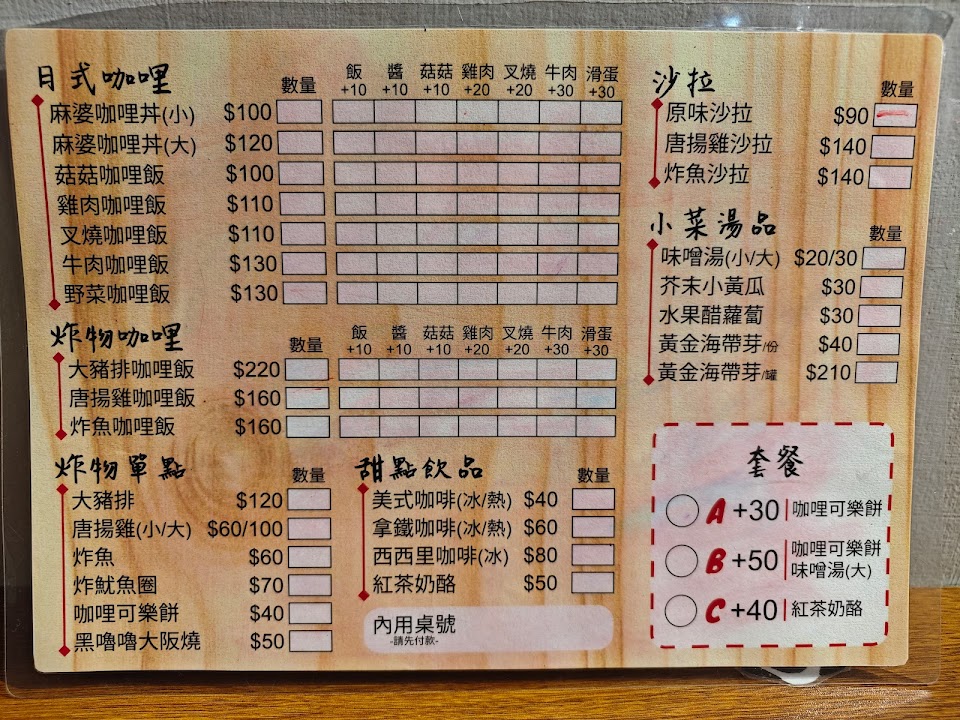 日式咖哩 數量 飯 醬 菇菇 雞肉 叉燒 牛肉 滑蛋
+10 +10 +10 +20 +20 +30 +30
麻婆咖哩丼(小) $100
麻婆咖哩丼(大) $120
菇菇咖哩飯 $100
雞肉咖哩飯 $110
叉燒咖哩飯 $110
牛肉咖哩飯 $130
野菜咖哩飯 $130
炸物咖哩 數量 飯 醬 菇菇 雞肉 叉燒 牛肉 滑蛋
+10 +10 +10 +20 +20 +30 +30
大豬排咖哩飯 $220
唐揚雞咖哩飯 $160
炸魚咖哩飯 $160
炸物單點 數量
大豬排 $120
唐揚雞(小/大) $60/100
炸魚 $60
炸魷魚圈 $70
咖哩可樂餅 $40
黑嚕嚕大阪燒 $50
甜點飲品 數量
美式咖啡(冰/熱) $40
拿鐵咖啡(冰/熱) $60
西西里咖啡(冰) $80
紅茶奶酪 $50
內用桌號
-請先付款-
沙拉 數量
原味沙拉 $90
唐揚雞沙拉 $140
炸魚沙拉 $140
小菜湯品 數量
味噌湯(小/大) $20/30
芥末小黃瓜 $30
水果醋蘿蔔 $30
黃金海帶芽/份 $40
黃金海帶芽/罐 $210
套餐
A +30 咖哩可樂餅
B +50 咖哩可樂餅
味噌湯(大)
C +40 紅茶奶酪